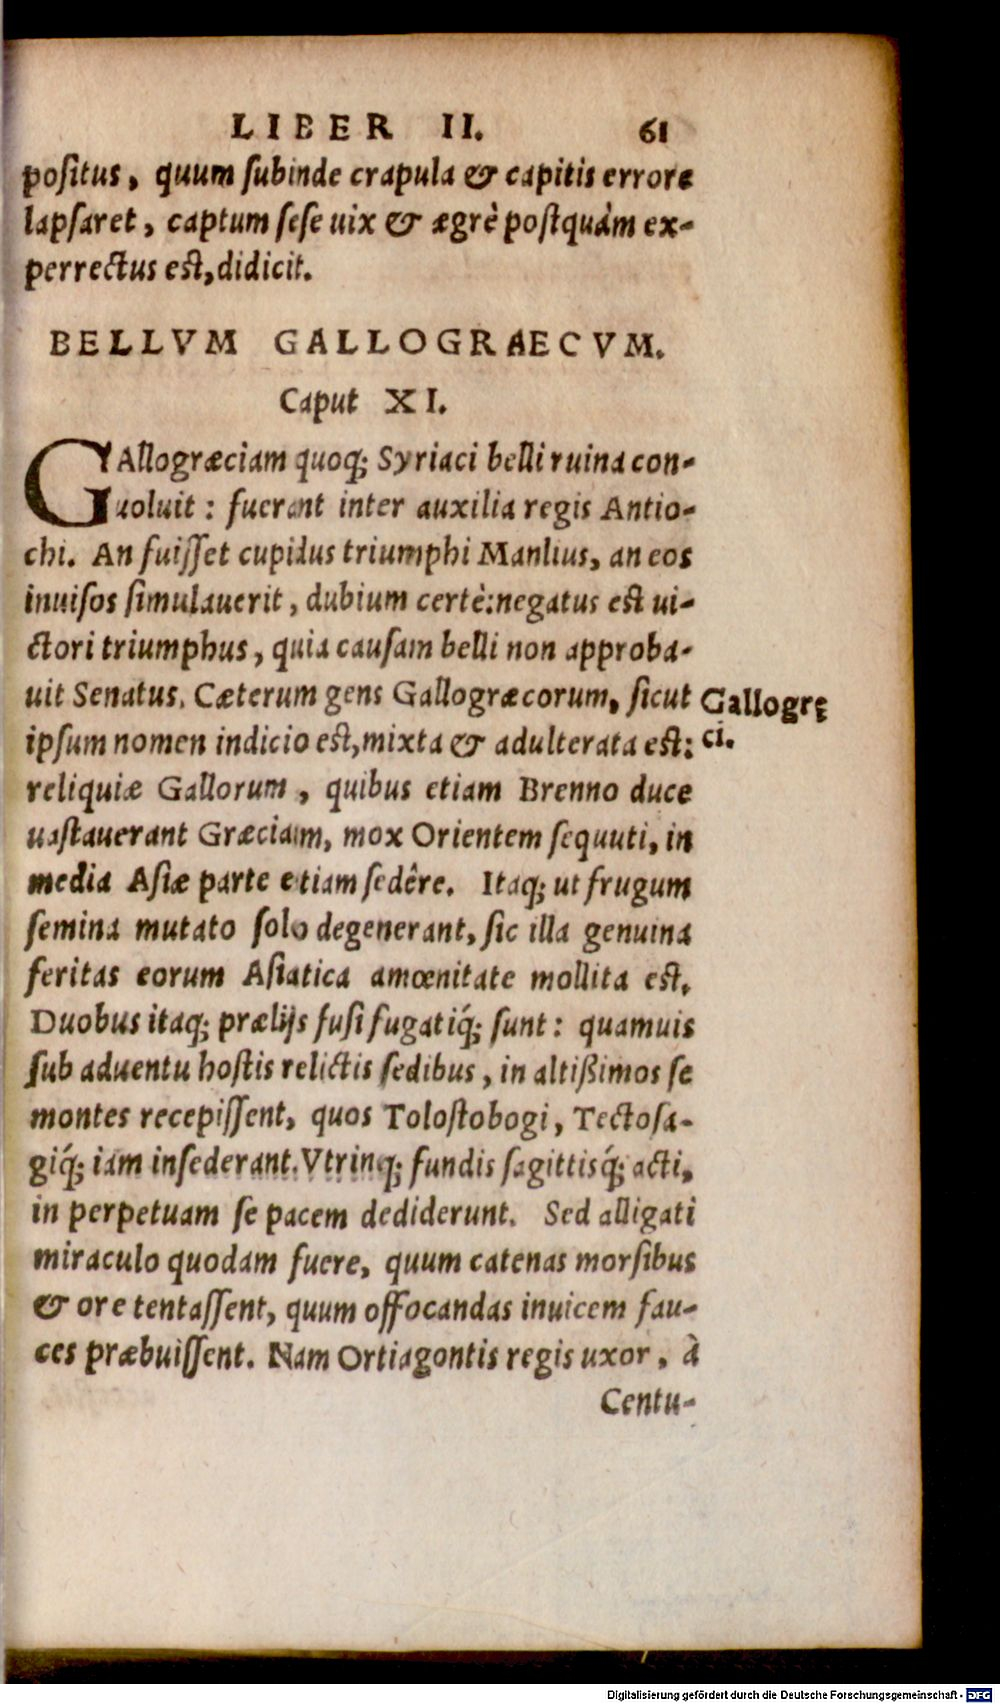 LIBER II. 61
positus, quum subinde crapula & capitis errore
lapsaret, captum sese uix & ægrè postquàm ex-
perrectus est, didicit.
BELLVM GALLOGRAECVM.
Caput XI.
GAllogræciam quoq; Syriaci belli ruina con-
uoluit: fuerant inter auxilia regis Antio-
chi. An fuisset cupidus triumphi Manlius, an eos
inuisos simulauerit, dubium certè: negatus est ui-
ctori triumphus, quia causam belli non approba-
uit Senatus. Cæterum gens Gallogræcorum, sicut
Gallogrę
ci.
ipsum nomen indicio est, mixta & adulterata est:
reliquiæ Gallorum, quibus etiam Brenno duce
uastauerant Græciam, mox Orientem sequuti, in
media Asiæ parte etiam sedêre. Itaq; ut frugum
semina mutato solo degenerant, sic illa genuina
feritas eorum Asiatica amœnitate mollita est.
Duobus itaq; prælijs fusi fugatiq́; sunt: quamuis
sub aduentu hostis relictis sedibus, in altißimos se
montes recepissent, quos Tolostobogi, Tectosa-
giq́; iam insederant. Vtrinq; fundis sagittisq́; acti,
in perpetuam se pacem dediderunt. Sed alligati
miraculo quodam fuere, quum catenas morsibus
& ore tentassent, quum offocandas inuicem fau-
ces præbuissent. Nam Ortiagontis regis uxor, à
Centu-
Digitalisierung gefördert durch die Deutsche Forschungsgemeinschaft - DFG